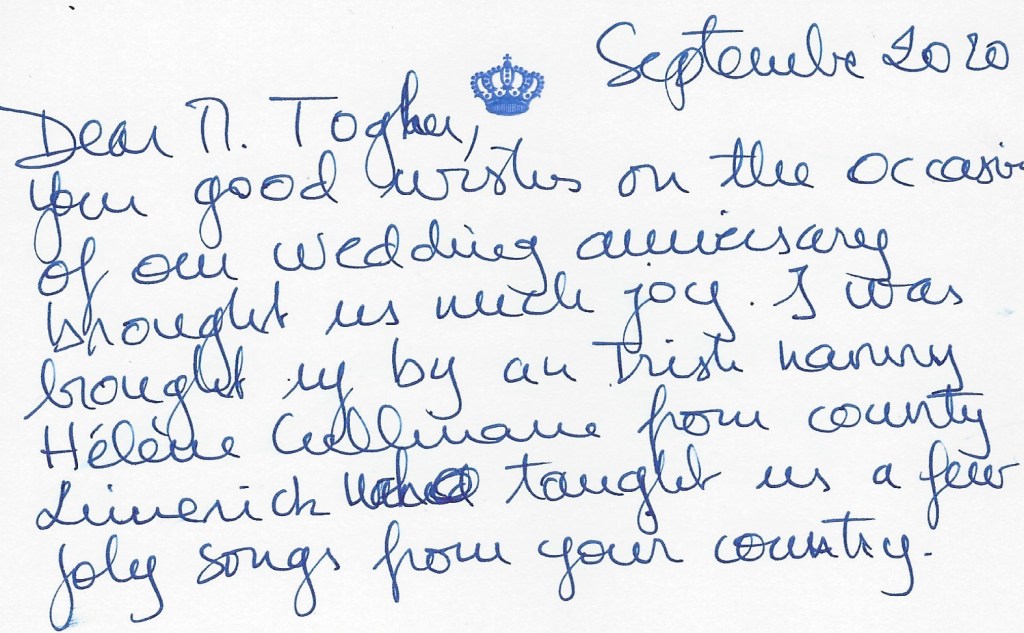 September 2020
Dear M. Togher,
Your good wishes on the occasion
of our wedding anniversary
brought us much joy. I was
brought up by an Irish nanny
Hélène Cullinane from county
Limerick who taught us a few
joly songs from your country.